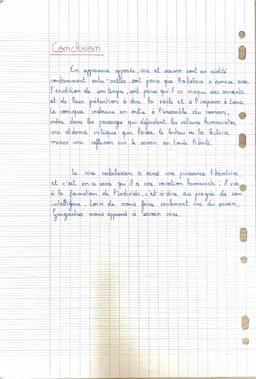 Conclusion
En apparence opposés, rire et savoir sont en réalité
constamment entre-mêlés, soit parce que Rabelais s'amuse avec
l'érudition de son temps, soit parce qu'il se moque des savants
et de leur prétention à dire la vérité et à l'imposer à tous.
Le comique instaure en outre à l'ensemble du roman,
même dans les passages qui défendent les valeurs humanistes,
une distance critique qui laisse le lecteur ou la lectrice
mener une réflexion sur le savoir en toute liberté.
Le rire rabelaisien a ainsi une puissance libératrice,
et c'est en ce sens qu'il a une vocation humaniste : il vise
à la formation de l'individu, c'est-à-dire au progrès de son
intelligence. Loin de nous faire seulement rire du savoir,
Gargantua nous apprend à savoir rire.